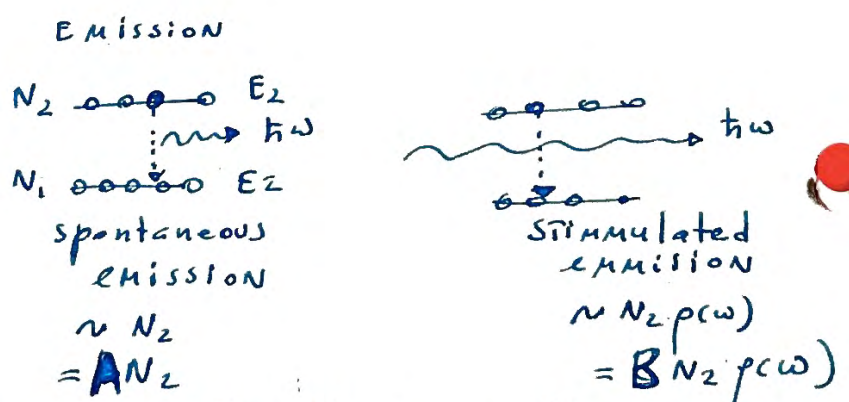 EMission
N₂ E₂
ħω
N₁ E₂
spontaneous
emission
~ N₂
= AN₂
ħω
STimmulated
emmision
~ N₂ ρ(ω)
= B N₂ ρ(ω)